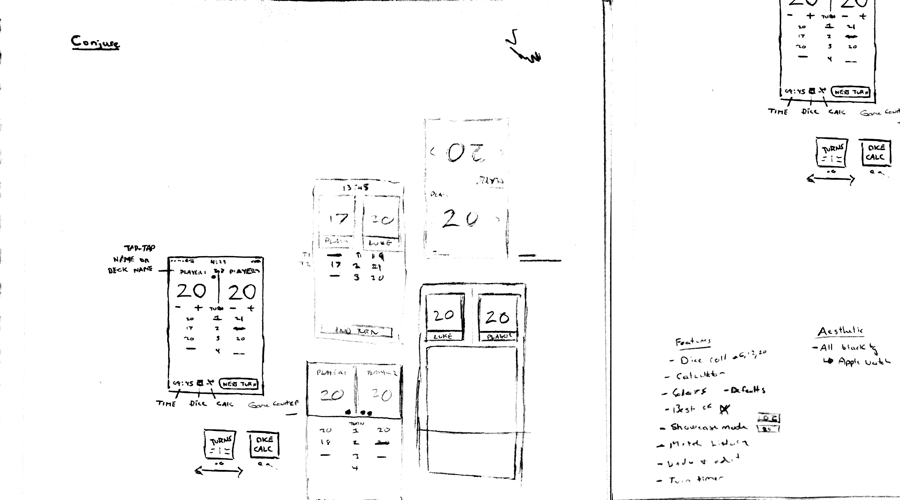 Conjure
TAP-TAP
NAME OR
DECK NAME
4:21
PLAYER1 PLAYER2
20 20
- + TURN - +
20 1 21
17 2
20 3 20
4
09:45 NEXT TURN
TIME DICE CALC Game Counter
TURNS
DICE
CALC
13:45
17 20
PLAYER LUKE
T1 1 19
T2 17 2 21
3 20
END TURN
PLAYER1 PLAYER2
20 20
TURN
20 1 20
18 2
3
4
20
20
20 20
LUKE
20 20
- + TURN - +
20 1 21
17 2
20 3 20
4
09:45 NEXT TURN
TIME DICE CALC Game Counter
TURNS
DICE
CALC
Features
- Dice roll
- Calculator
- Colors - Defaults
- Best of
- Showcase mode
- Match history
- Turn timer
Aesthetic
- All black
Apple Watch